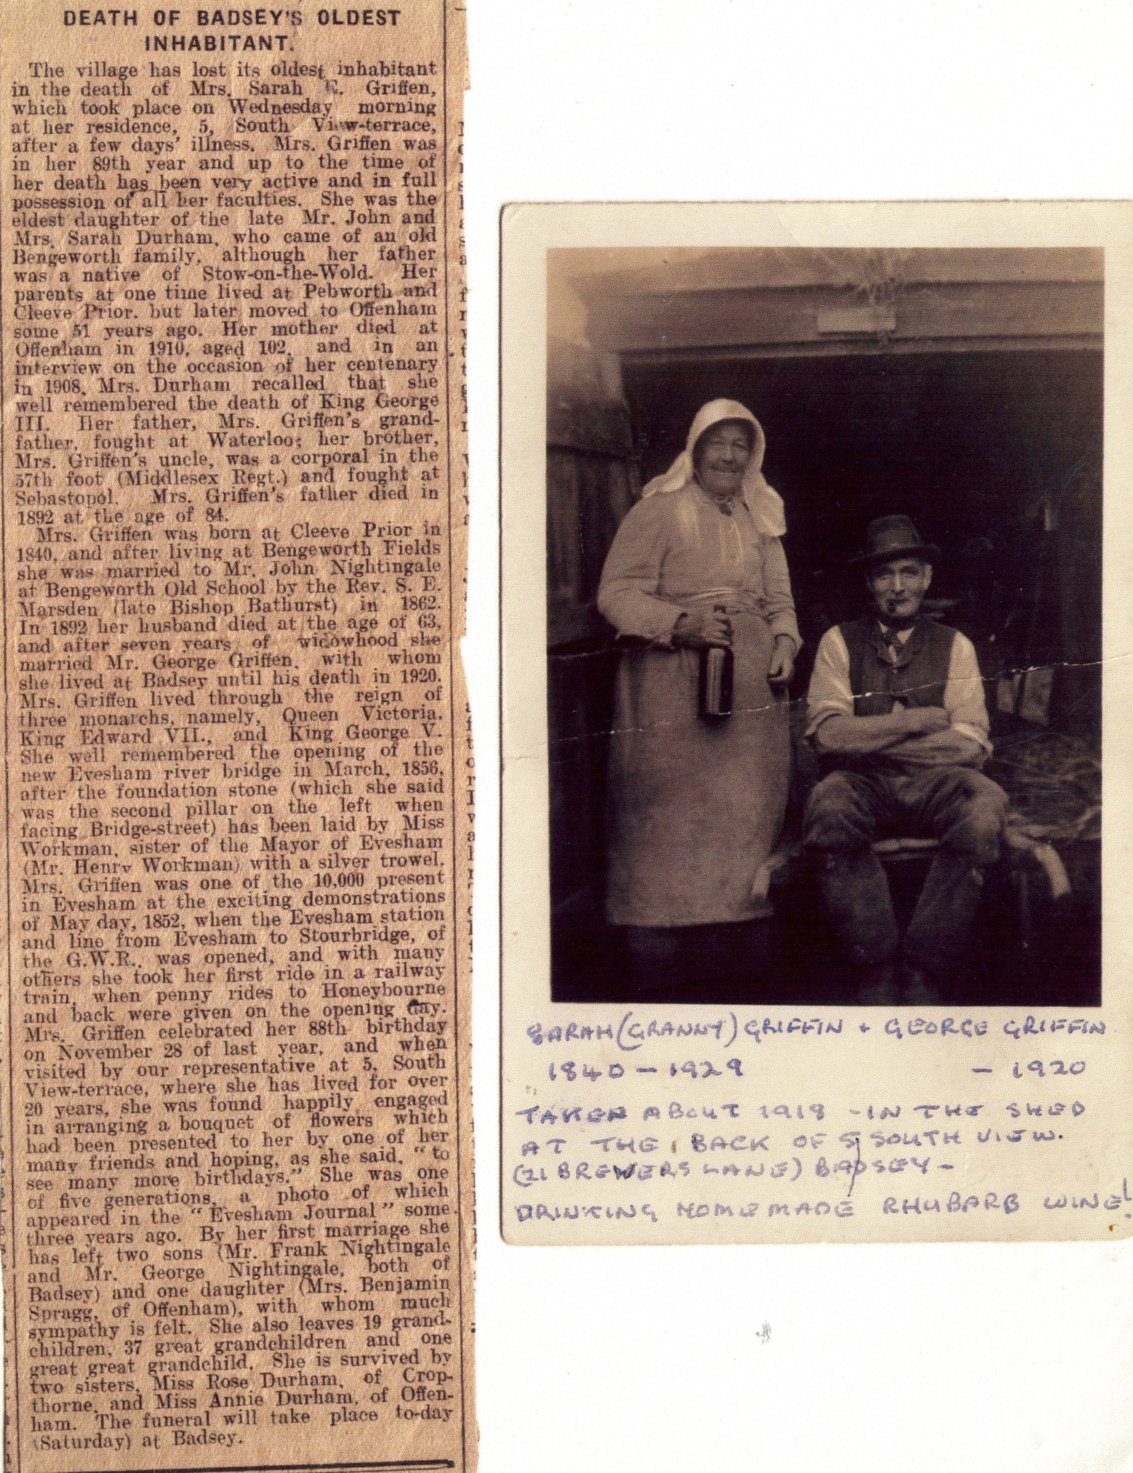 DEATH OF BADSEY'S OLDEST
INHABITANT.
The village has lost its oldest inhabitant
in the death of Mrs. Sarah E. Griffen,
which took place on Wednesday morning
at her residence, 5, South View-terrace,
after a few days' illness. Mrs. Griffen was
in her 89th year and up to the time of
her death has been very active and in full
possession of all her faculties. She was the
eldest daughter of the late Mr. John and
Mrs. Sarah Durham, who came of an old
Bengeworth family, although her father
was a native of Stow-on-the-Wold. Her
parents at one time lived at Pebworth and
Cleeve Prior, but later moved to Offenham
some 51 years ago. Her mother died at
Offenham in 1910, aged 102, and in an
interview on the occasion of her centenary
in 1908, Mrs. Durham recalled that she
well remembered the death of King George
III. Her father, Mrs. Griffen's grand-
father, fought at Waterloo; her brother,
Mrs. Griffen's uncle, was a corporal in the
57th foot (Middlesex Regt.) and fought at
Sebastopol. Mrs. Griffen's father died in
1892 at the age of 84.
Mrs. Griffen was born at Cleeve Prior in
1840, and after living at Bengeworth Fields
she was married to Mr. John Nightingale
at Bengeworth Old School by the Rev. S. E.
Marsden (late Bishop Bathurst) in 1862.
In 1892 her husband died at the age of 63,
and after seven years of widowhood she
married Mr. George Griffen, with whom
she lived at Badsey until his death in 1920.
Mrs. Griffen lived through the reign of
three monarchs, namely, Queen Victoria,
King Edward VII., and King George V.
She well remembered the opening of the
new Evesham river bridge in March, 1856,
after the foundation stone (which she said
was the second pillar on the left when
facing Bridge-street) has been laid by Miss
Workman, sister of the Mayor of Evesham
(Mr. Henry Workman) with a silver trowel.
Mrs. Griffen was one of the 10,000 present
in Evesham at the exciting demonstrations
of May day, 1852, when the Evesham station
and line from Evesham to Stourbridge, of
the G.W.R., was opened, and with many
others she took her first ride in a railway
train, when penny rides to Honeybourne
and back were given on the opening day.
Mrs. Griffen celebrated her 88th birthday
on November 28 of last year, and when
visited by our representative at 5, South
View-terrace, where she has lived for over
20 years, she was found happily engaged
in arranging a bouquet of flowers which
had been presented to her by one of her
many friends and hoping, as she said, "to
see many more birthdays." She was one
of five generations, a photo of which
appeared in the "Evesham Journal" some
three years ago. By her first marriage she
has left two sons (Mr. Frank Nightingale
and Mr. George Nightingale, both of
Badsey) and one daughter (Mrs. Benjamin
Spragg, of Offenham), with whom much
sympathy is felt. She also leaves 19 grand-
children, 37 great grandchildren and one
great great grandchild. She is survived by
two sisters, Miss Rose Durham, of Crop-
thorne, and Miss Annie Durham, of Offen-
ham. The funeral will take place to-day
(Saturday) at Badsey.
SARAH (GRANNY) GRIFFIN + GEORGE GRIFFIN
1840 - 1929 - 1920
TAKEN ABOUT 1918 - IN THE SHED
AT THE BACK OF 5 SOUTH VIEW.
(21 BREWERS LANE) BADSEY -
DRINKING HOMEMADE RHUBARB WINE!